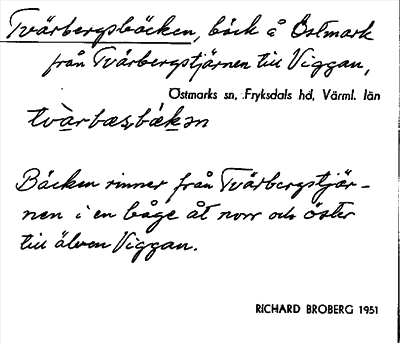 Tvärbergsbäcken, bäck å Östmark
från Tvärbergstjärnen till Viggan,
Östmarks sn, Fryksdals hd, Värml. län
Bäcken rinner från Tvärbergstjär-
nen i en båge åt norr och öster
till älven Viggan.
RICHARD BROBERG 1951